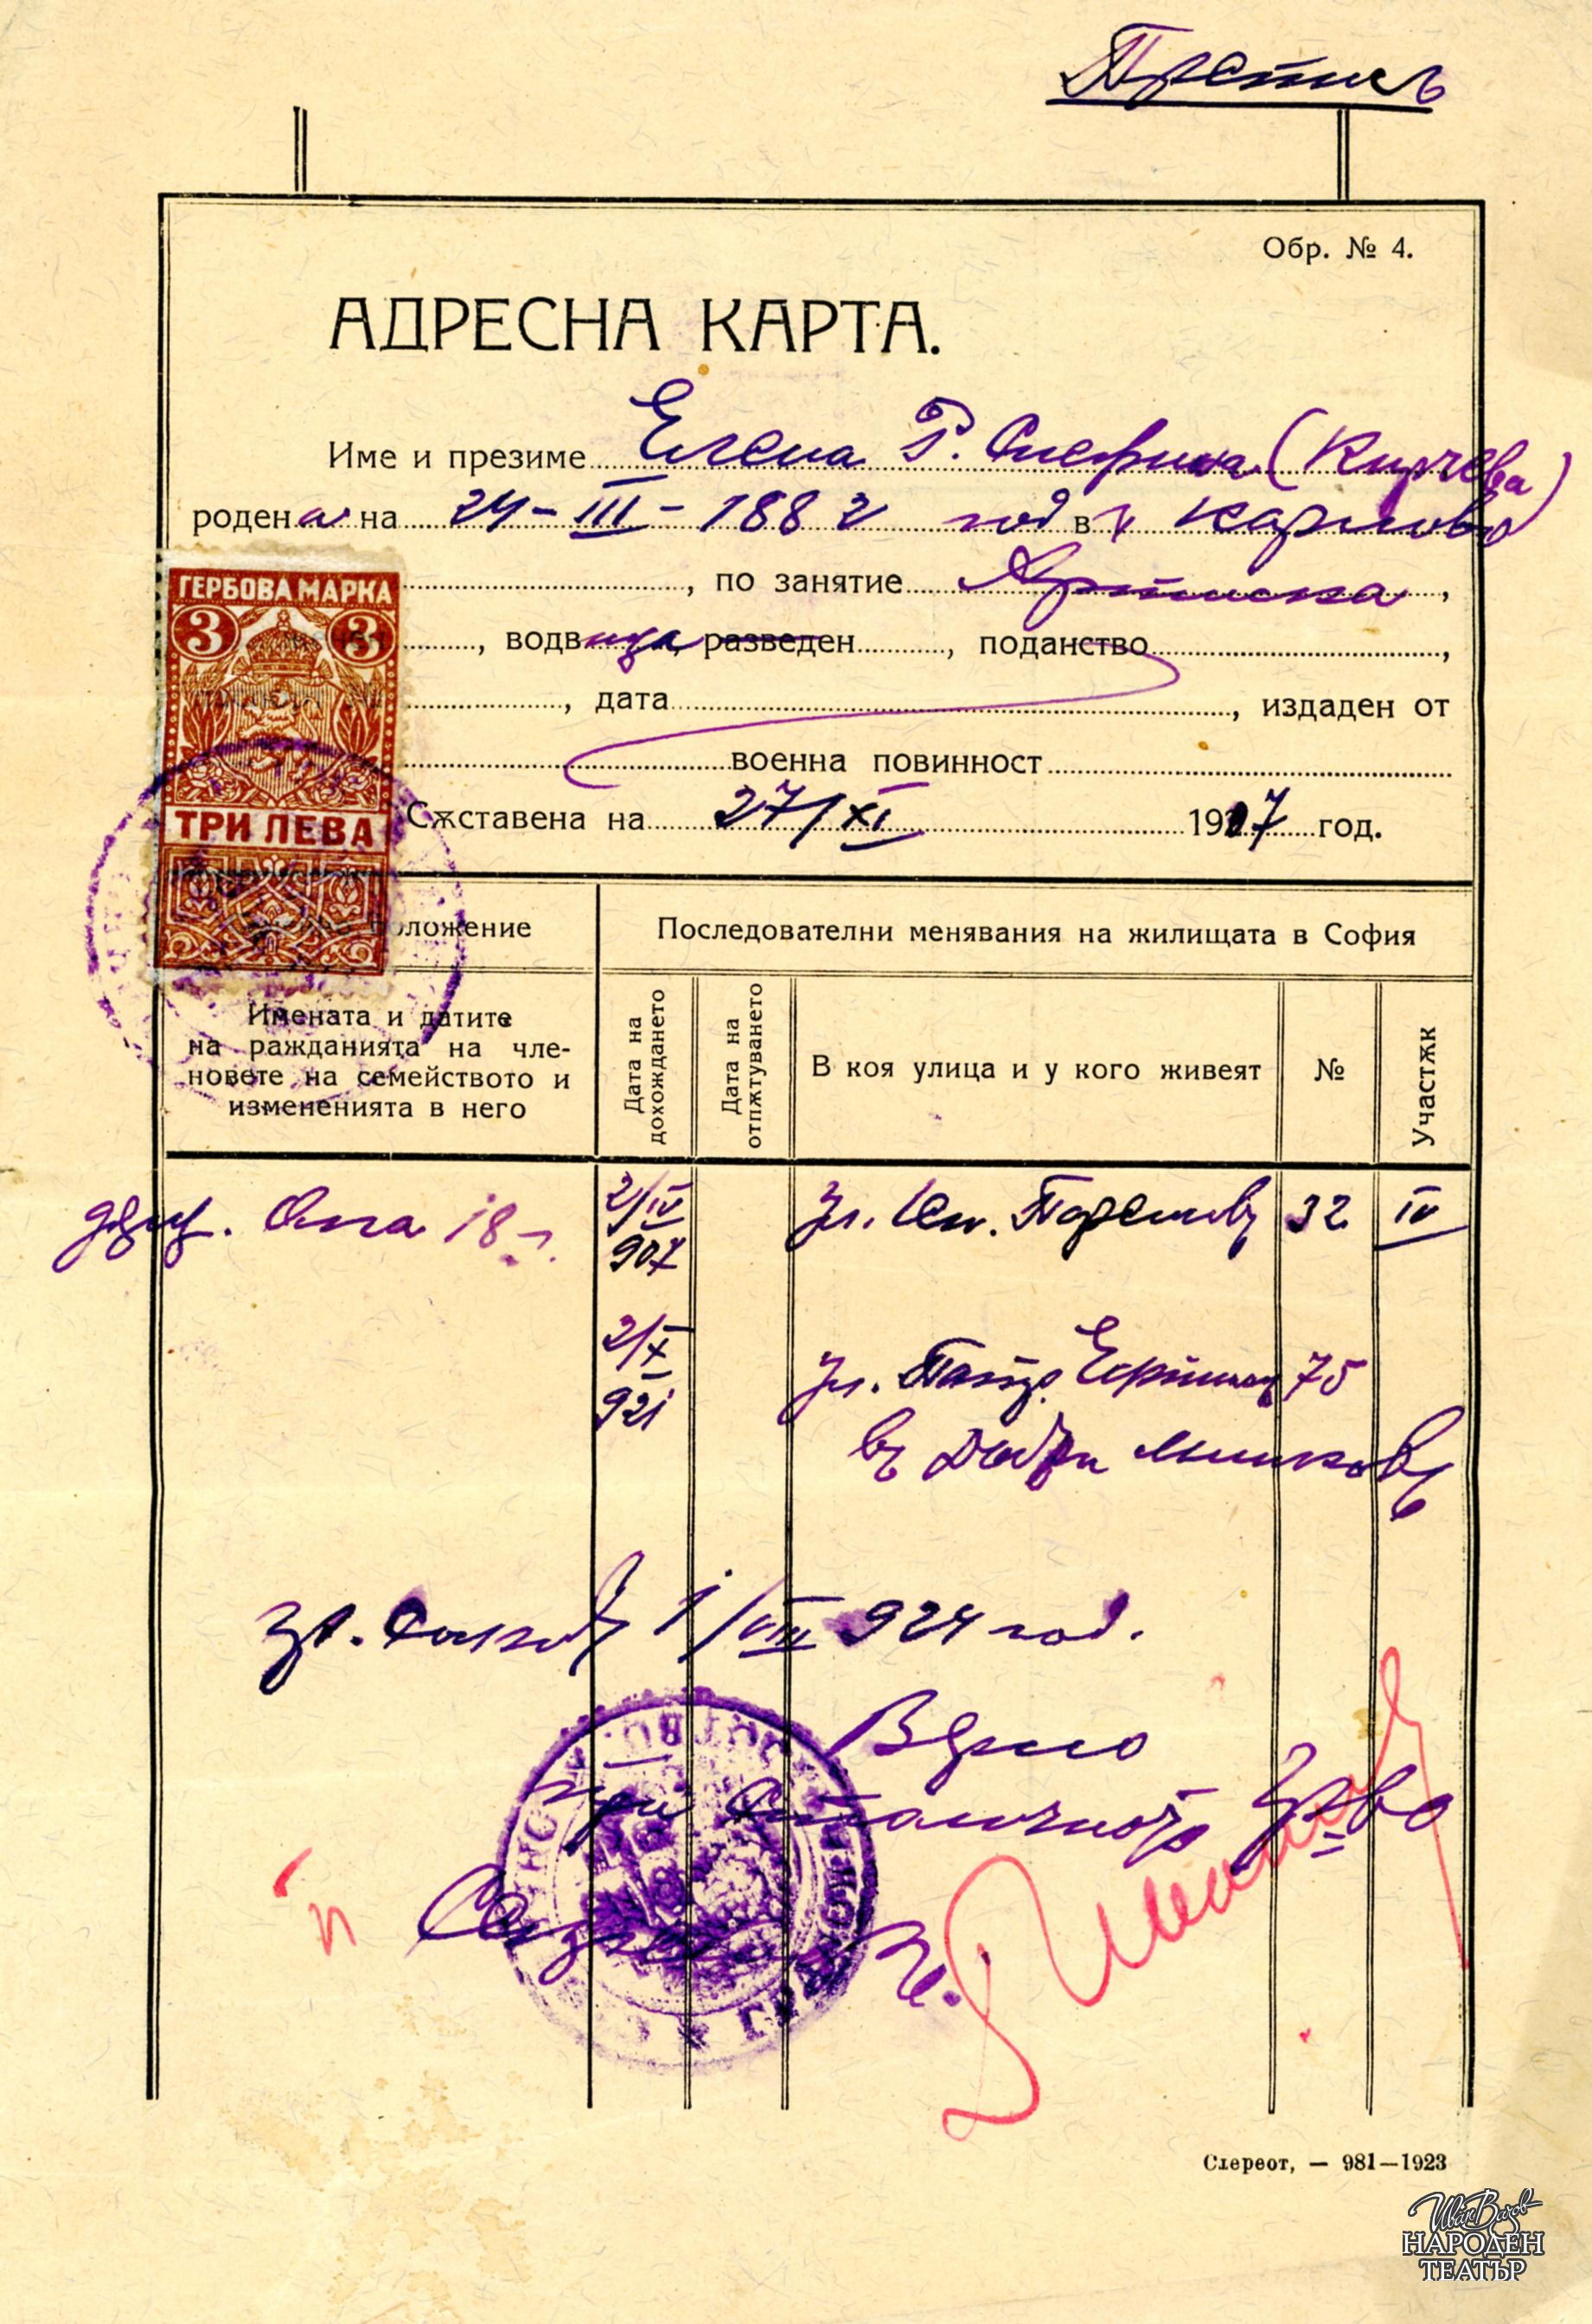 Препис
Обр. № 4.
АДРЕСНА КАРТА.
Име и презиме Елена Р. Снежина (Кирчева)
родена на 24-III-1882 год в г Карлово
ГЕРБОВА МАРКА
3 3
, по занятие Артиска,
, водвица, разведен, поданство,
, дата, издаден от
военна повинност
ТРИ ЛЕВА
Сѫставена на 27/XI 1917 год.
положение
Последователни менявания на жилищата в София
Имената и датите
на ражданията на чле-
новете на семейството и
измененията в него
Дата на
дохождането
Дата на
отпѫтуването
В коя улица и у кого живеят
№
Участѫк
дъщ. Олга 18 г.
2/IV
907
ул. Кн. 32 IV
2/X
921
ул. Патр. Евтимий 75
въ
1/VIII 924 год.
Вярно
при Столичното
Стереот, — 981—1923
Иван Вазов
НАРОДЕН
ТЕАТЪР